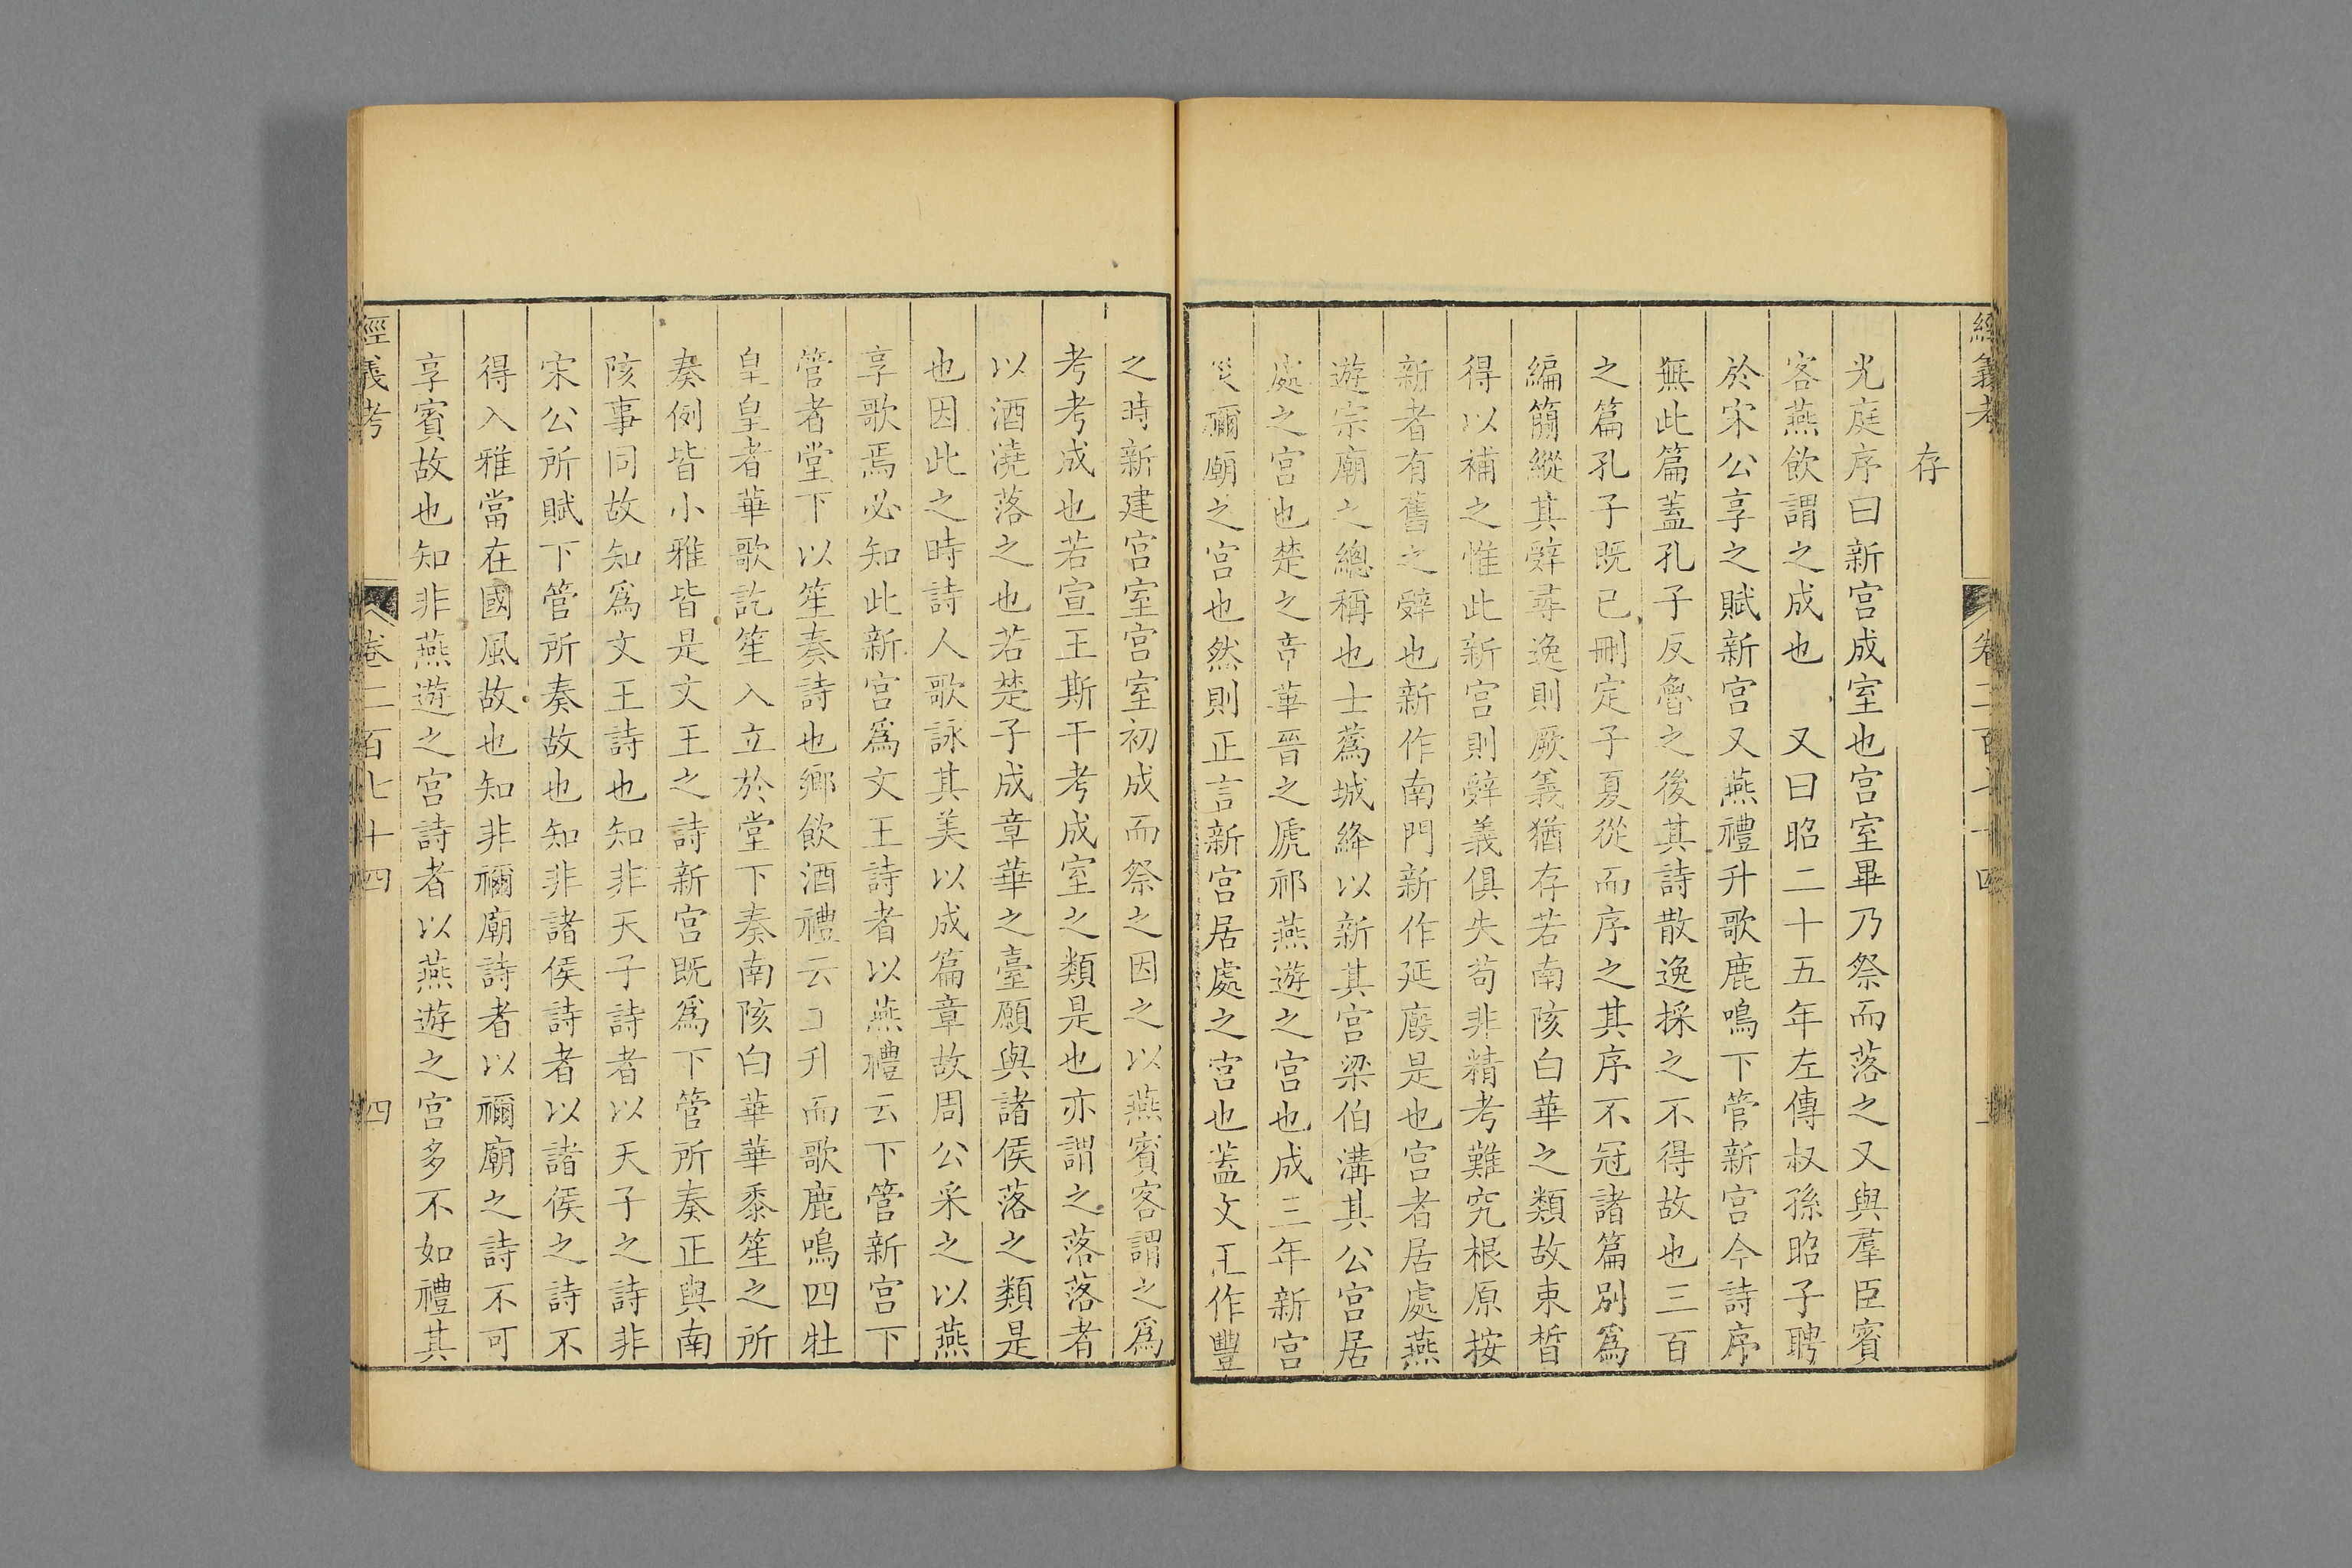 經義考 卷二百七十四
存
光庭序曰新宫成室也宫室畢乃祭而落之又與羣臣賓
客燕飲謂之成也 又曰昭二十五年左傳叔孫昭子聘
於宋公享之賦新宫又燕禮升歌鹿鳴下管新宫今詩序
無此篇蓋孔子反魯之後其詩散逸採之不得故也三百
之篇孔子既已刪定子夏從而序之其序不冠諸篇别爲
編簡縱其辭尋逸則厥義猶存若南陔白華之類故束晳
得以補之惟此新宫則辭義俱失苟非精考難究根原按
新者有舊之辭也新作南門新作延廏是也宫者居處燕
遊宗廟之總稱也士蔿城絳以新其宫梁伯溝其公宫居
處之宫也楚之章華晉之虒祁燕遊之宫也成三年新宫
災禰廟之宫也然則正言新宫居處之宫也蓋文王作豐
之時新建宫室宫室初成而祭之因之以燕賓客謂之爲
考考成也若宣王斯干考成室之類是也亦謂之落落者
以酒澆落之也若楚子成章華之臺願與諸侯落之類是
也因此之時詩人歌詠其美以成篇章故周公采之以燕
享歌焉必知此新宫爲文王詩者以燕禮云下管新宫下
管者堂下以笙奏詩也鄉飲酒禮云工升而歌鹿鳴四牡
皇皇者華歌訖笙入立於堂下奏南陔白華華黍笙之所
奏例皆小雅皆是文王之詩新宫既爲下管所奏正與南
陔事同故知爲文王詩也知非天子詩者以天子之詩非
宋公所賦下管所奏故也知非諸侯詩者以諸侯之詩不
得入雅當在國風故也知非禰廟詩者以禰廟之詩不可
享賓故也知非燕遊之宫詩者以燕遊之宫多不如禮其
經義考 卷二百七十四 四